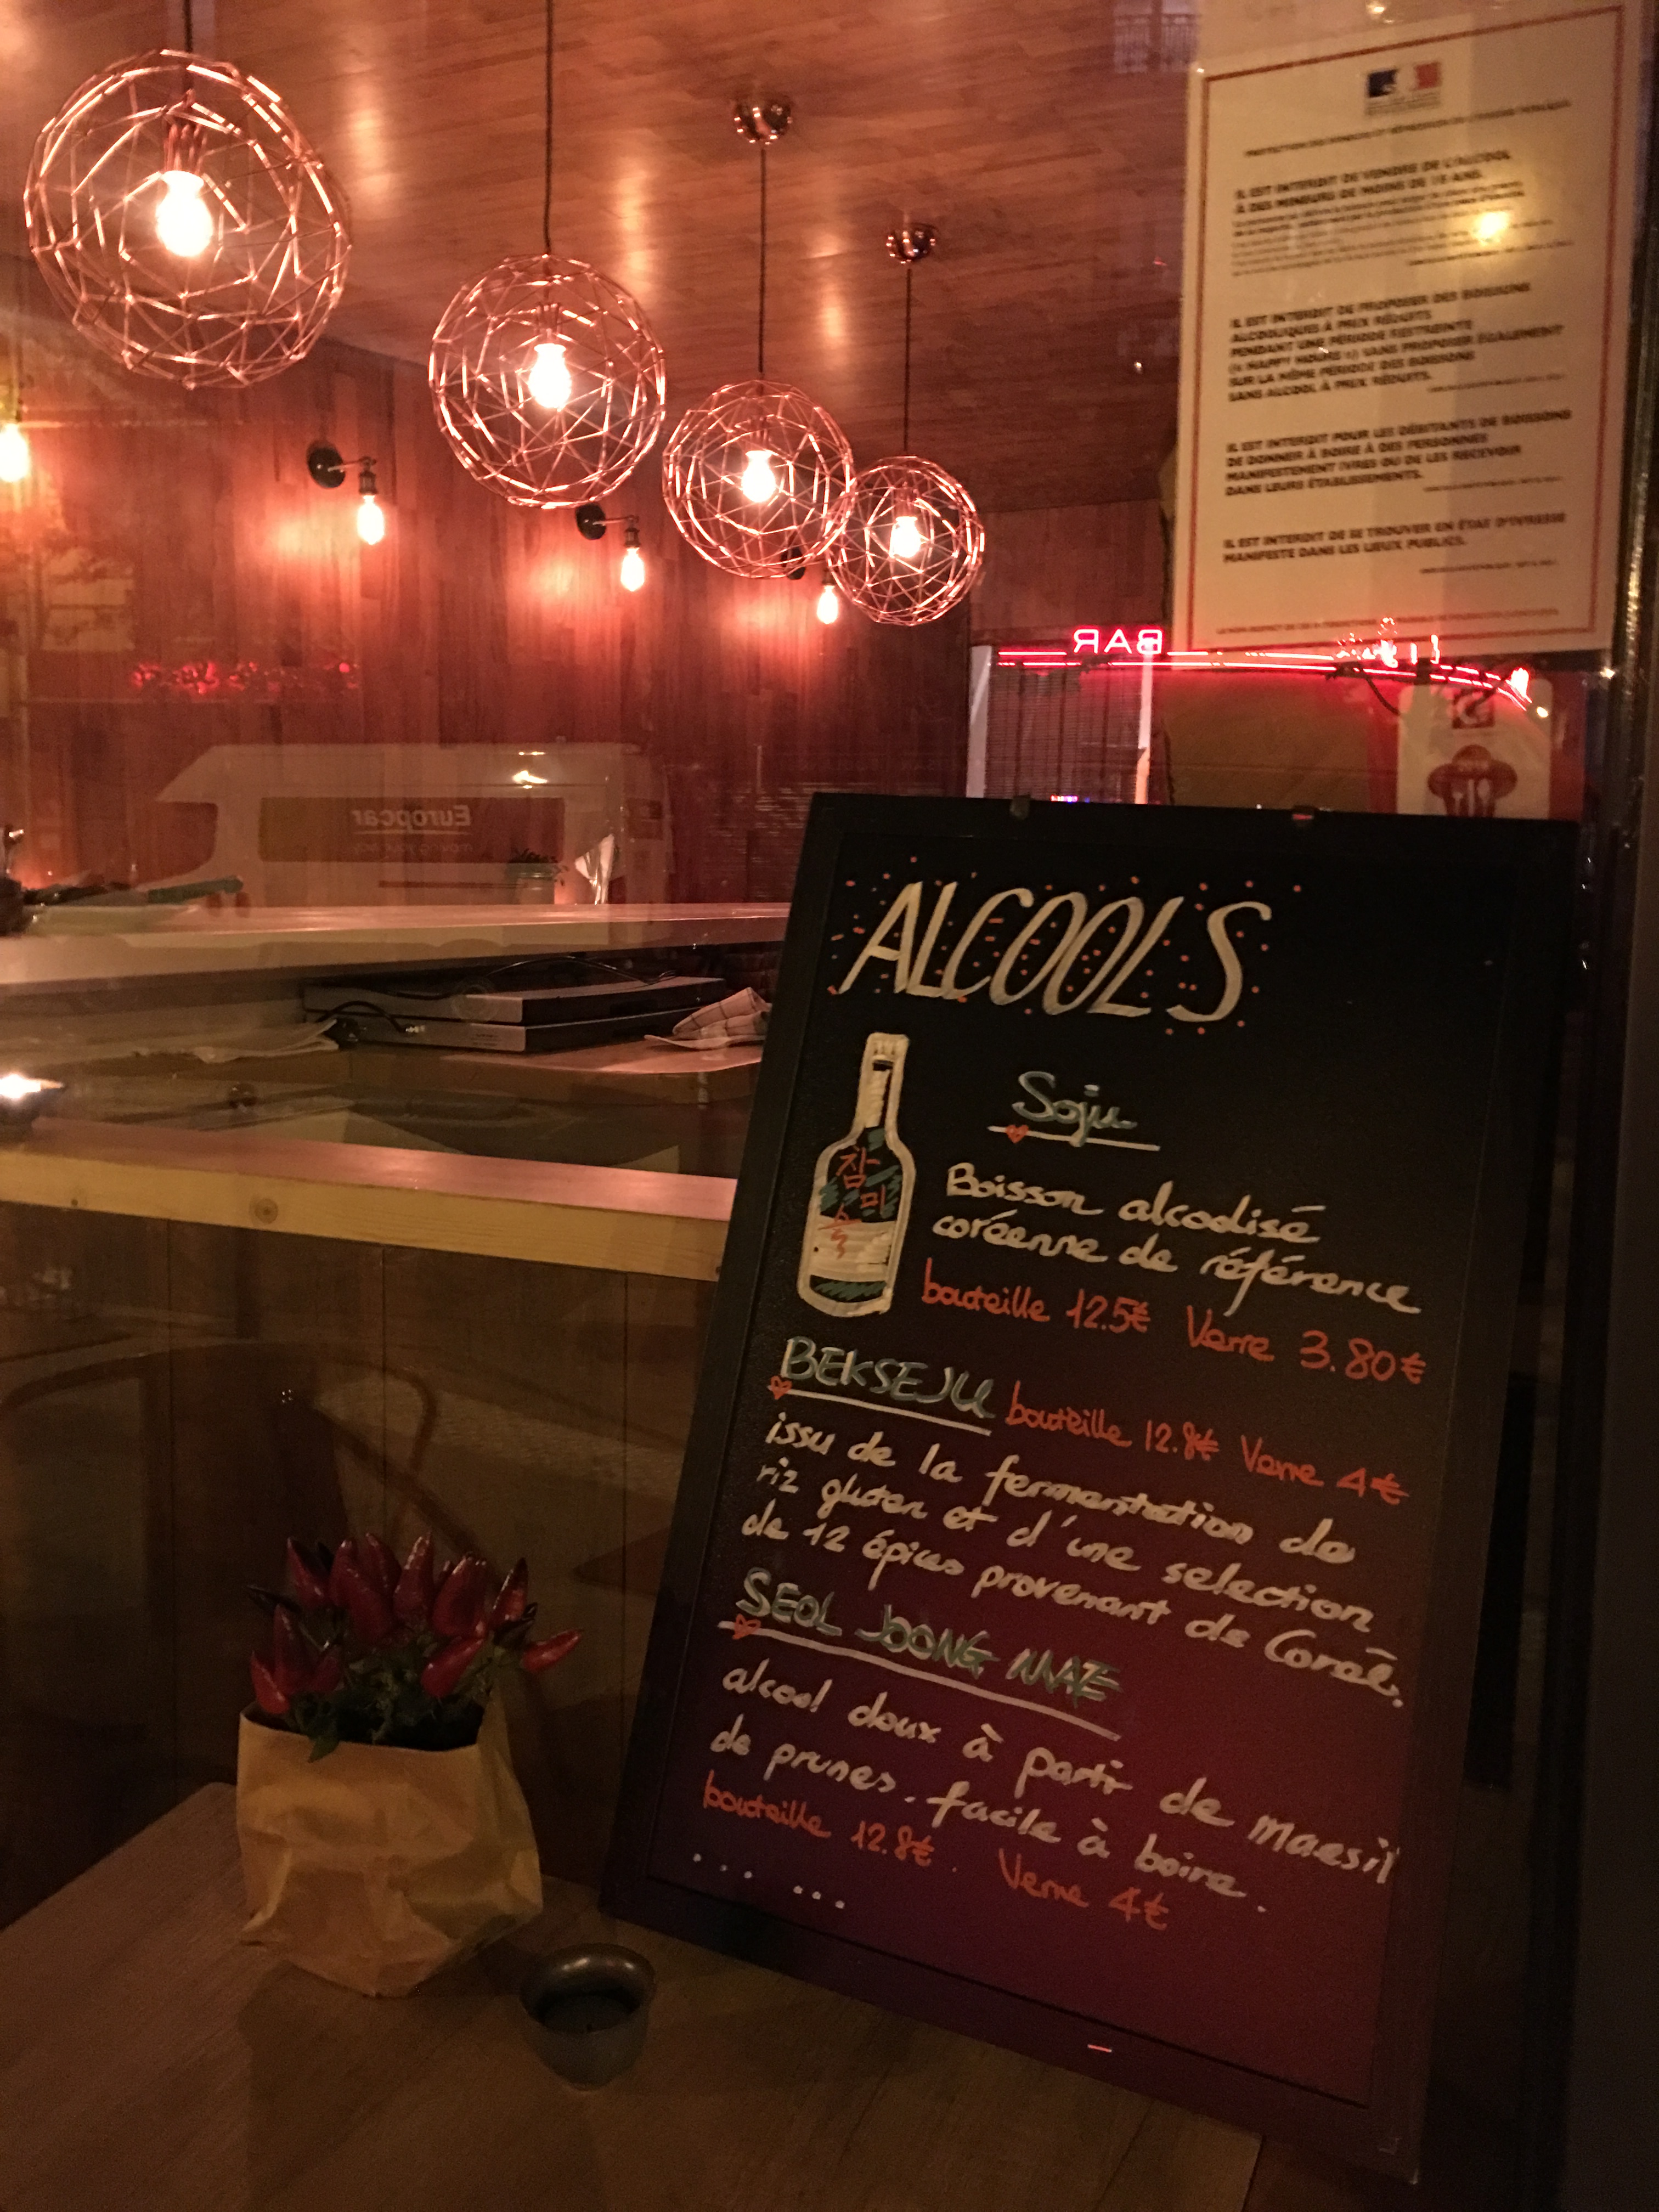 IL EST INTERDIT DE VENDRE DE L'ALCOOL
À DES MINEURS DE MOINS DE 18 ANS.
IL EST INTERDIT DE PROPOSER DES BOISSONS
ALCOOLIQUES À PRIX RÉDUITS
PENDANT UNE PÉRIODE RESTREINTE
(« HAPPY HOURS ») SANS PROPOSER ÉGALEMENT
SUR LA MÊME PÉRIODE DES BOISSONS
SANS ALCOOL À PRIX RÉDUITS.
IL EST INTERDIT POUR LES DÉBITANTS DE BOISSONS
DE DONNER À BOIRE À DES PERSONNES
MANIFESTEMENT IVRES OU DE LES RECEVOIR
DANS LEURS ÉTABLISSEMENTS.
IL EST INTERDIT DE SE TROUVER EN ÉTAT D'IVRESSE
MANIFESTE DANS LES LIEUX PUBLICS.
BAR
Europcar
moving your way
ALCOOL'S
Soju
참
미
Boisson alcoolisé
coréenne de référence
bouteille 12.5€ Verre 3.80€
BEKSEJU bouteille 12.8€ Verre 4€
issu de la fermentation de
riz gluten et d'une selection
de 12 épices provenant de Corée.
SEOL JOONG MAE
alcool doux à partir de maesil
de prunes. facile à boire.
bouteille 12.8€. Verre 4€
... ...